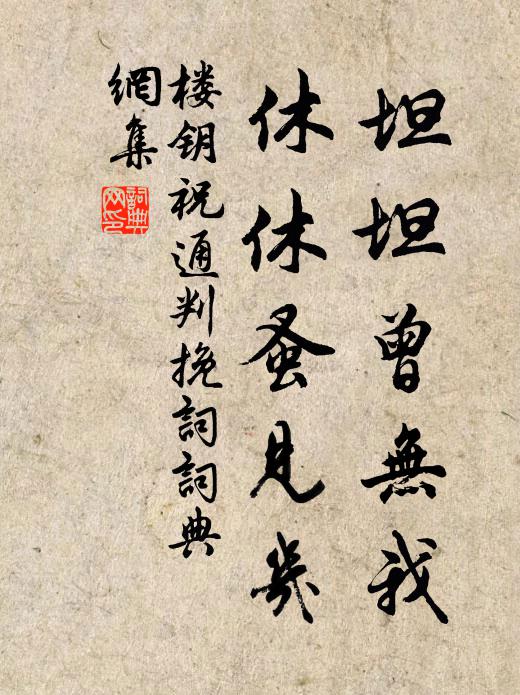 坦坦曾無我
休休蚤見幾
楼钥祝通判挽詞詞典
網集
詞典
网印